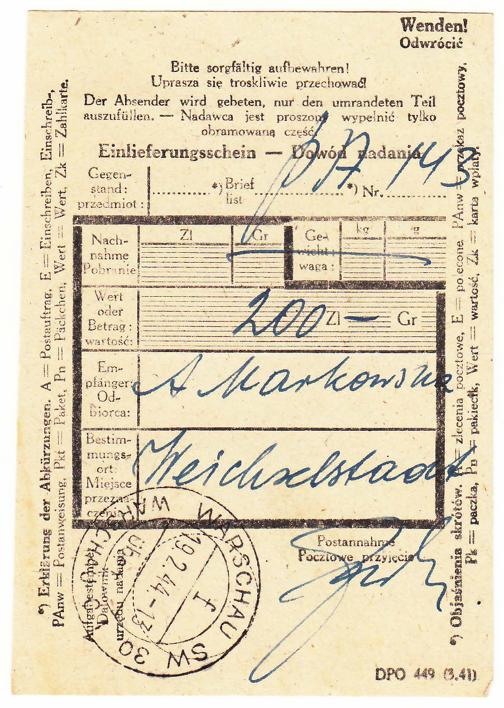 Wenden!
Odwrócić
Bitte sorgfältig aufbewahren!
Uprasza się troskliwie przechować!
Der Absender wird gebeten, nur den umrandeten Teil
auszufüllen. — Nadawca jest proszony wypełnić tylko
obramowaną część.
Einlieferungsschein — Dowód nadania
Gegen-
stand:
przedmiot:
*) Brief
list
*) Nr.
143
Nach-
nahme
Pobranie
Zl
Gr
Ge-
wicht:
waga:
kg
g
Wert
oder
Betrag:
wartość:
200 Zl — Gr
Em-
pfänger:
Od-
biorca:
A Markowska
Bestim-
mungs-
ort:
Miejsce
przezna-
czenia:
Weichselstadt
Postannahme
Pocztowe przyjęcie
Aufgabestempel
Datownik
urzędu nadania
WARSCHAU SW 30
WARSCHAU
19.2.44.-13
f
DPO 449 (3.41)
*) Erklärung der Abkürzungen. A = Postauftrag, E = Einschreiben, Einschreib-,
PAnw = Postanweisung, Pkt = Paket, Pn = Päckchen, Wert = Wert, Zk = Zahlkarte.
*) Objaśnienia skrótów. A = zlecenia pocztowe, E = polecone, PAnw = przekaz pocztowy,
Pk = paczka, Pn = pakiecik, Wert = wartość, Zk = karta wpłaty.